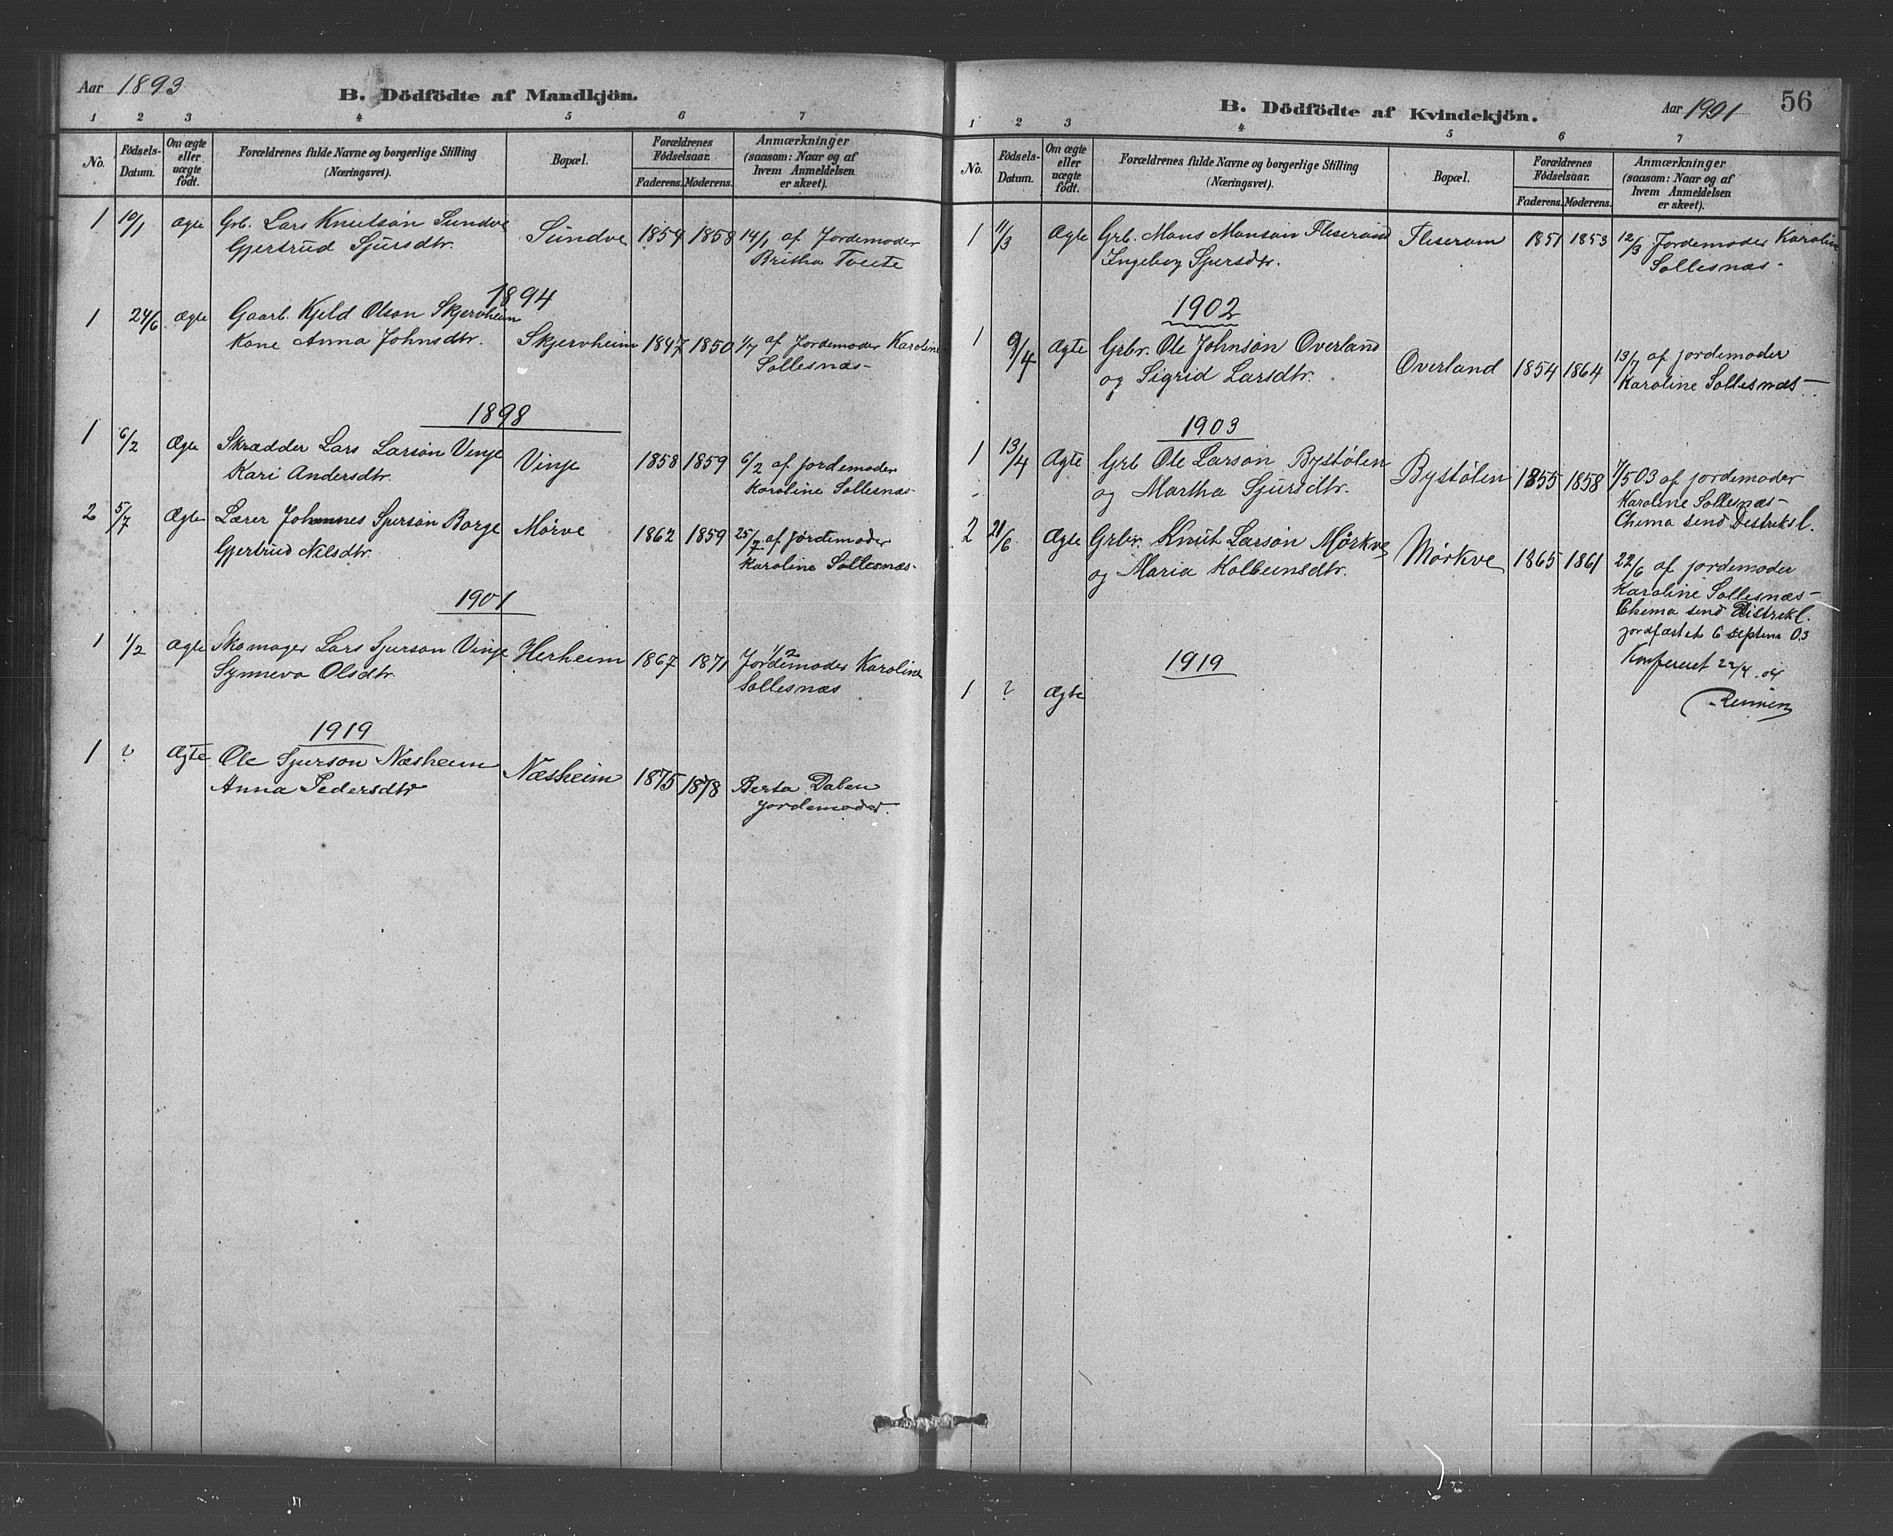 Aar 1893
B. Dödfödte af Mandkjön.
1 2 3 4 5 6 7
No. Födsels-Datum. Om ægte eller uægte födt. Forældrenes fulde Navne og borgerlige Stilling (Næringsvei). Bopæl. Forældrenes Födselsaar. Faderens. Moderens. Anmærkninger (saasom: Naar og af hvem Anmeldelsen er skeet).
1 10/1 Ægte Grb. Lars Knutson Sundve Sundve 1859 1858 14/1 af Jordemoder
Gjertrud Sjursdtr. Britha Tveite
1894
1 24/6 Ægte Gaarb. Kjeld Olson Skjervheim Skjervheim 1847 1850 1/7 af Jordemoder Karoline
Kone Anna Johnsdtr. Sollesnæs-
1898
1 6/2 Ægte Skrædder Lars Larson Vinje Vinje 1858 1859 6/2 af jordemoder
Kari Andersdtr. Karoline Sollesnæs-
2 5/7 Ægte Lærer Johannes Sjurson Borge Mørve 1862 1859 25/7 af jordemoder
Gjertrud Nilsdtr. Karoline Sollesnæs-
1901
1 1/2 Ægte Skomager Lars Sjurson Vinje Herheim 1867 1871 1/2 Jordemoder Karoline
Synneva Olsdtr. Sollesnæs
1919
1 ? Ægte Ole Sjurson Næsheim Næsheim 1875 1878 Berta Dalen
Anna Pedersdtr jordemoder.
B. Dödfödte af Kvindekjön.
Aar 1901 56
1 2 3 4 5 6 7
No. Födsels-Datum. Om ægte eller uægte födt. Forældrenes fulde Navne og borgerlige Stilling (Næringsvei). Bopæl. Forældrenes Födselsaar. Faderens. Moderens. Anmærkninger (saasom: Naar og af hvem Anmeldelsen er skeet).
1 11/3 Ægte Grb. Mons Monson Fliseram Fliseram 1851 1853 12/3 Jordemoder Karoline
Ingeborg Sjursdtr. Sollesnæs-
1902
1 9/4 Ægte Grbr. Ole Johnson Overland Overland 1854 1864 13/7 af jordemoder
og Sigrid Larsdtr. Karoline Sollesnæs-
1903
1 13/4 Ægte Grb Ole Larson Bystølen Bystølen 1855 1858 1/5 03 af jordemoder
og Martha Sjursdtr. Karoline Sollesnæs-
send Distriksl.
2 21/6 Ægte Grbr. Knut Larson Mørkve Mørkve 1865 1861 22/6 af jordemoder
og Maria Kolbeinsdtr. Karoline Sollesnæs-
send Distriksl.
jordfæstet 6 septem 03
1919
Konfereret 22/4 04
1 ? Ægte